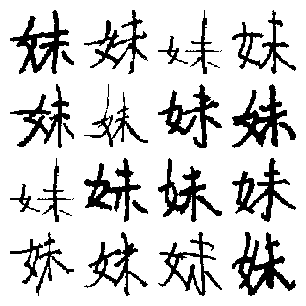 妹妹妹妹
妹妹妹妹
妹妹妹妹
妹妹妹妹